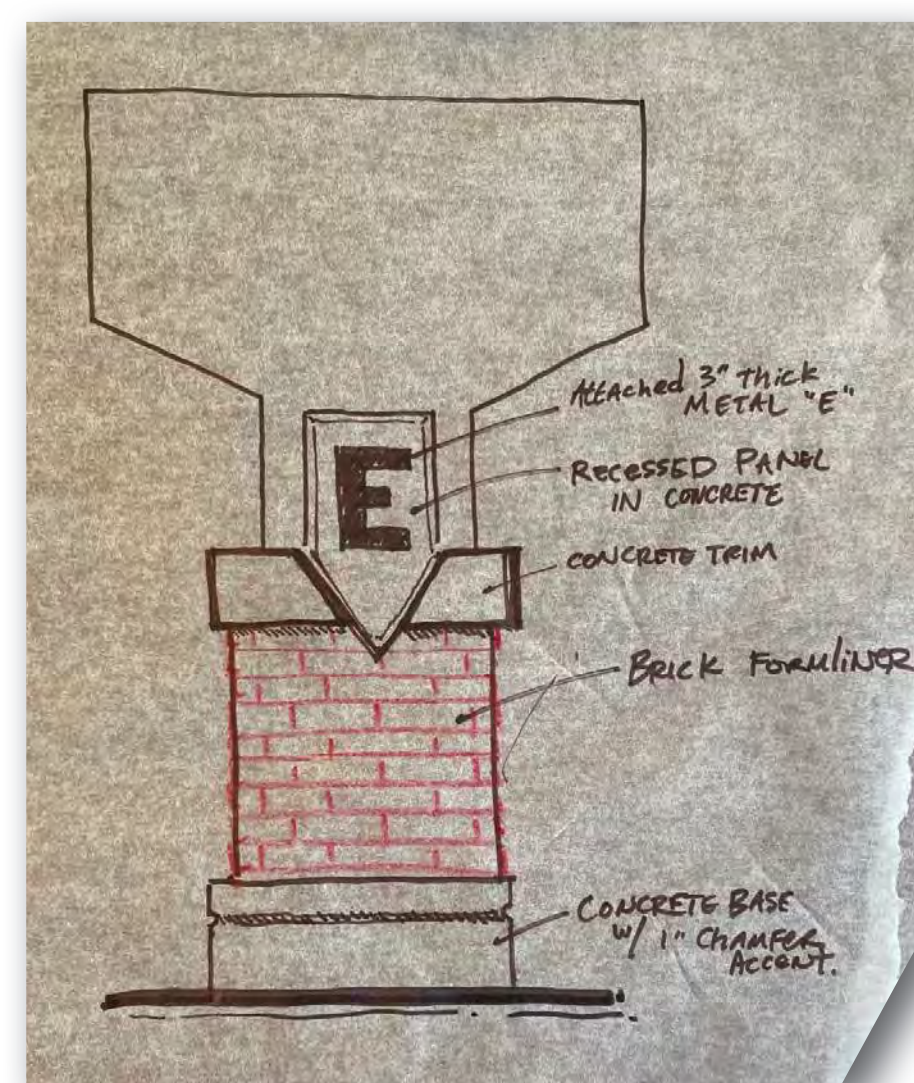 Attached 3" thick
METAL "E"
E
RECESSED PANEL
IN CONCRETE
CONCRETE TRIM
BRICK FORMLINER
CONCRETE BASE
W/ 1" CHAMFER
ACCENT.